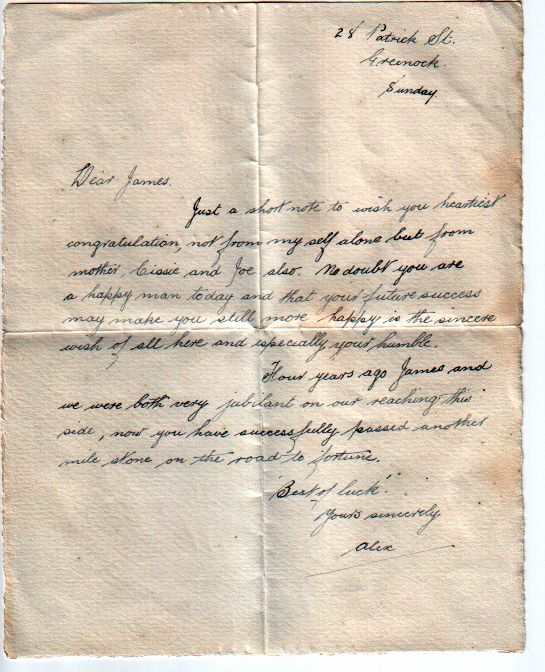 28 Patrick St.
Greenock.
Sunday.
Dear James.
Just a short note to wish you heartiest
congratulation, not from my self alone but from
mother, Cissie and Joe also. No doubt you are
a happy man today and that your future success
may make you still more happy is the sincere
wish of all here and especially your humble.
Four years ago James and
we were both very jubilant on our reaching this
side, now you have successfully passed another
mile stone on the road to fortune.
Best of luck.
Yours sincerely
Alex